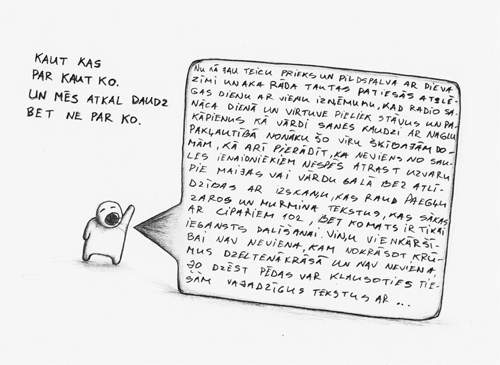 KAUT KAS
PAR KAUT KO.
UN MĒS ATKAL DAUDZ
BET NE PAR KO.
NU KĀ JAU TEICU PRIEKS UN PILDSPALVA AR DIEVA
ZĪMI UN AKA RĀDA TAUTAS PATIESĀS ATSLĒ-
GAS DIENU AR VIENU IZŅĒMUMU, KAD RADIO SA-
NĀCA DIENĀ UN VIRTUVE PIELIEK STĀVUS UN PA-
KĀPIENUS KĀ VĀRDI SANES KAUDZI AR NAGLU
PAKĻAUTĪBĀ NONĀKU ŠO VĪRU ŠĶĪBAJĀM DO-
MĀM, KĀ ARĪ PIERĀDĪT, KA NEVIENS NO SAU-
LES IENAIDNIEKIEM NESPĒS ATRAST UZVARU
PIE MAIJAS VAI VĀRDU GALĀ BEZ ATLĪ-
DZĪBAS AR IZSKAŅU, KAS RAUD PAEGĻU
ZAROS UN MURMINA TEKSTUS, KAS SĀKAS
AR CIPARIEM 102, BET KOMATS IR TIKAI
IEGANSTS DALĪŠANAI. VIŅU VIENKĀRŠĪ-
BAI NAV NEVIENA, KAM NOKRĀSOT KRŪ-
MUS DZELTENĀ KRĀSĀ UN NAV NEVIENA,
JO DZĒST PĒDAS VAR KLAUSOTIES TIE-
ŠĀM VAJADZĪGUS TEKSTUS AR ...